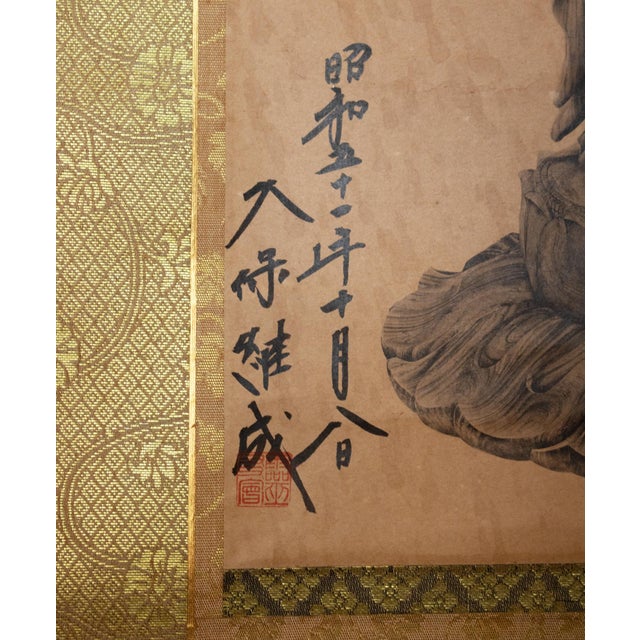 昭和五十一年十月八日
久保継成